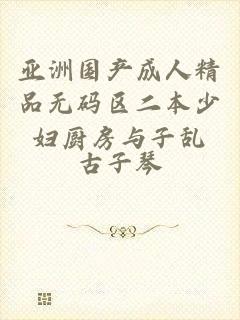 亚洲国产成人精
品无码区二本少
妇厨房与子乱
古子琴